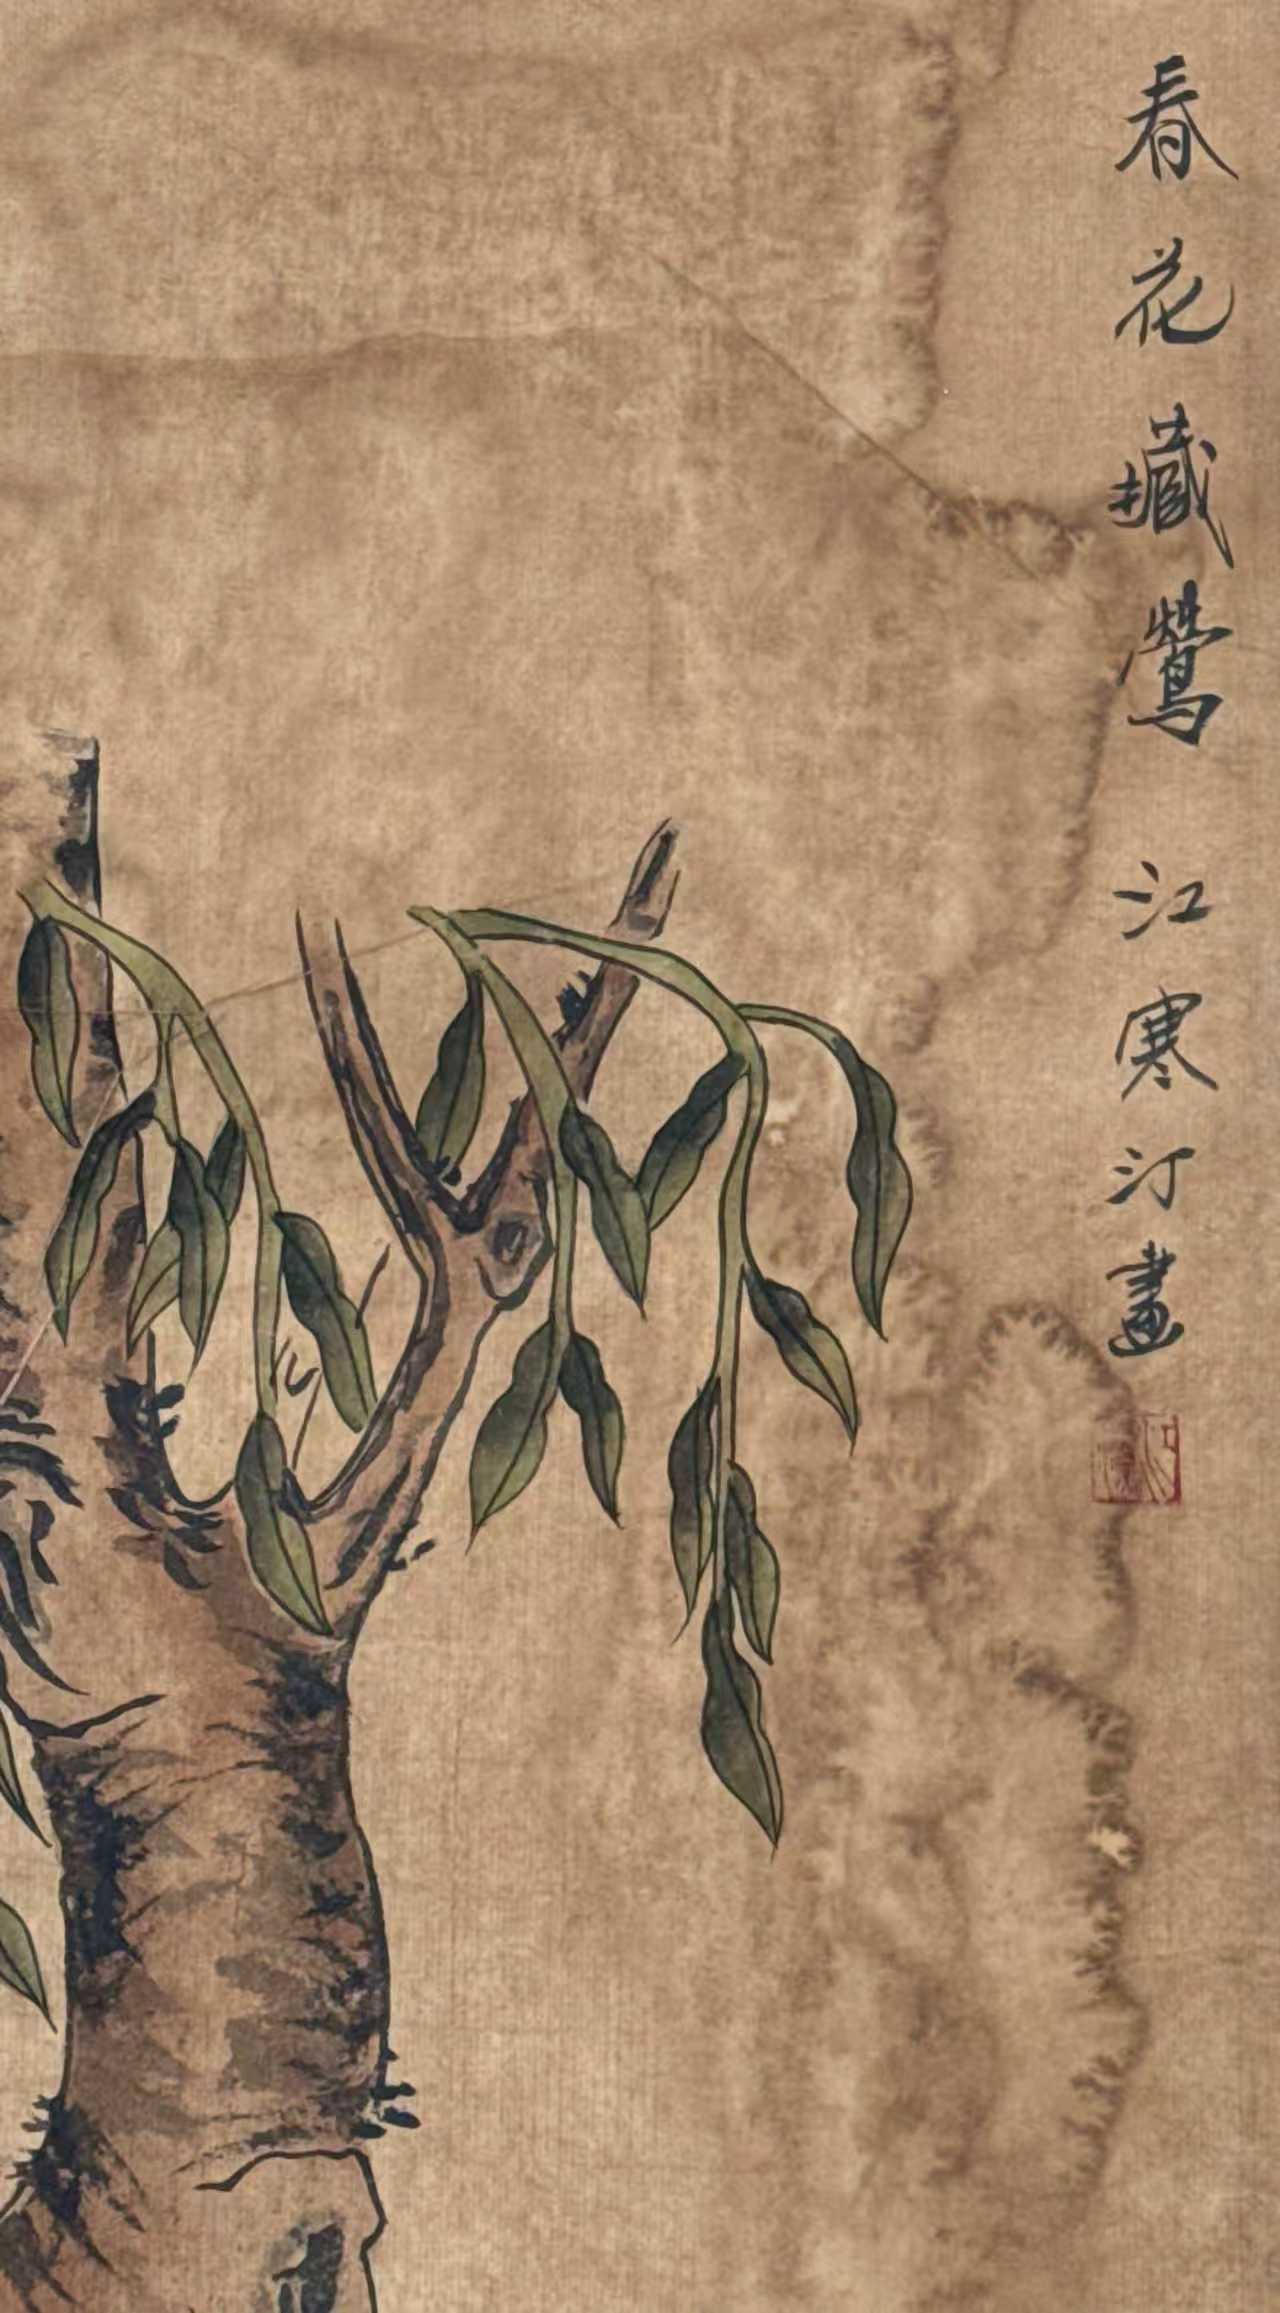 春花藏鶯 江寒汀畫